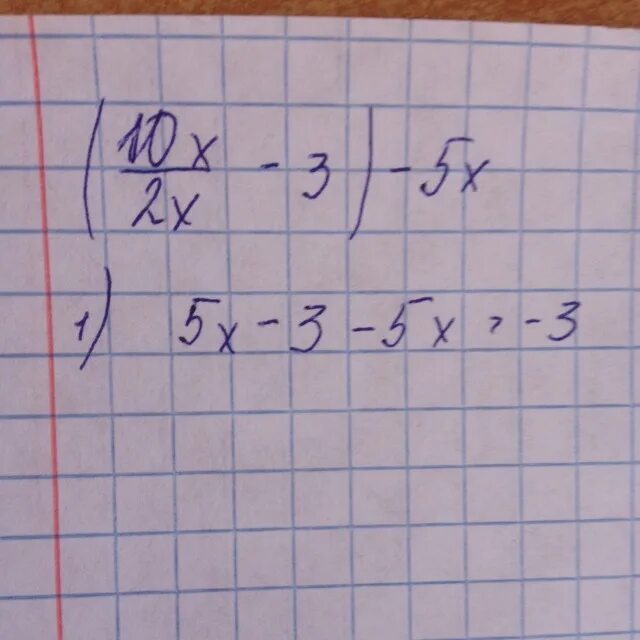 (10x/2x - 3) - 5x
1) 5x - 3 - 5x = -3